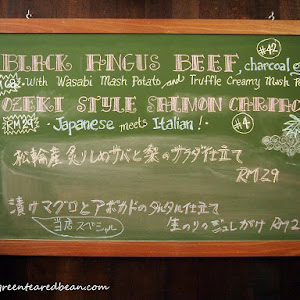 BLACK ANGUS BEEF, charcoal
#42
With Wasabi Mash Potato and Truffle Creamy Mash
OZEKI STYLE SALMON CARPAC
RM29
Japanese meets Italian!
#4
松輪産炙りしめサバと梨のサラダ仕立て
RM29
漬けマグロとアボカドのタルタル仕立て
当店スペシャル
生のりのジュレがけ RM2
greentearedbean.com